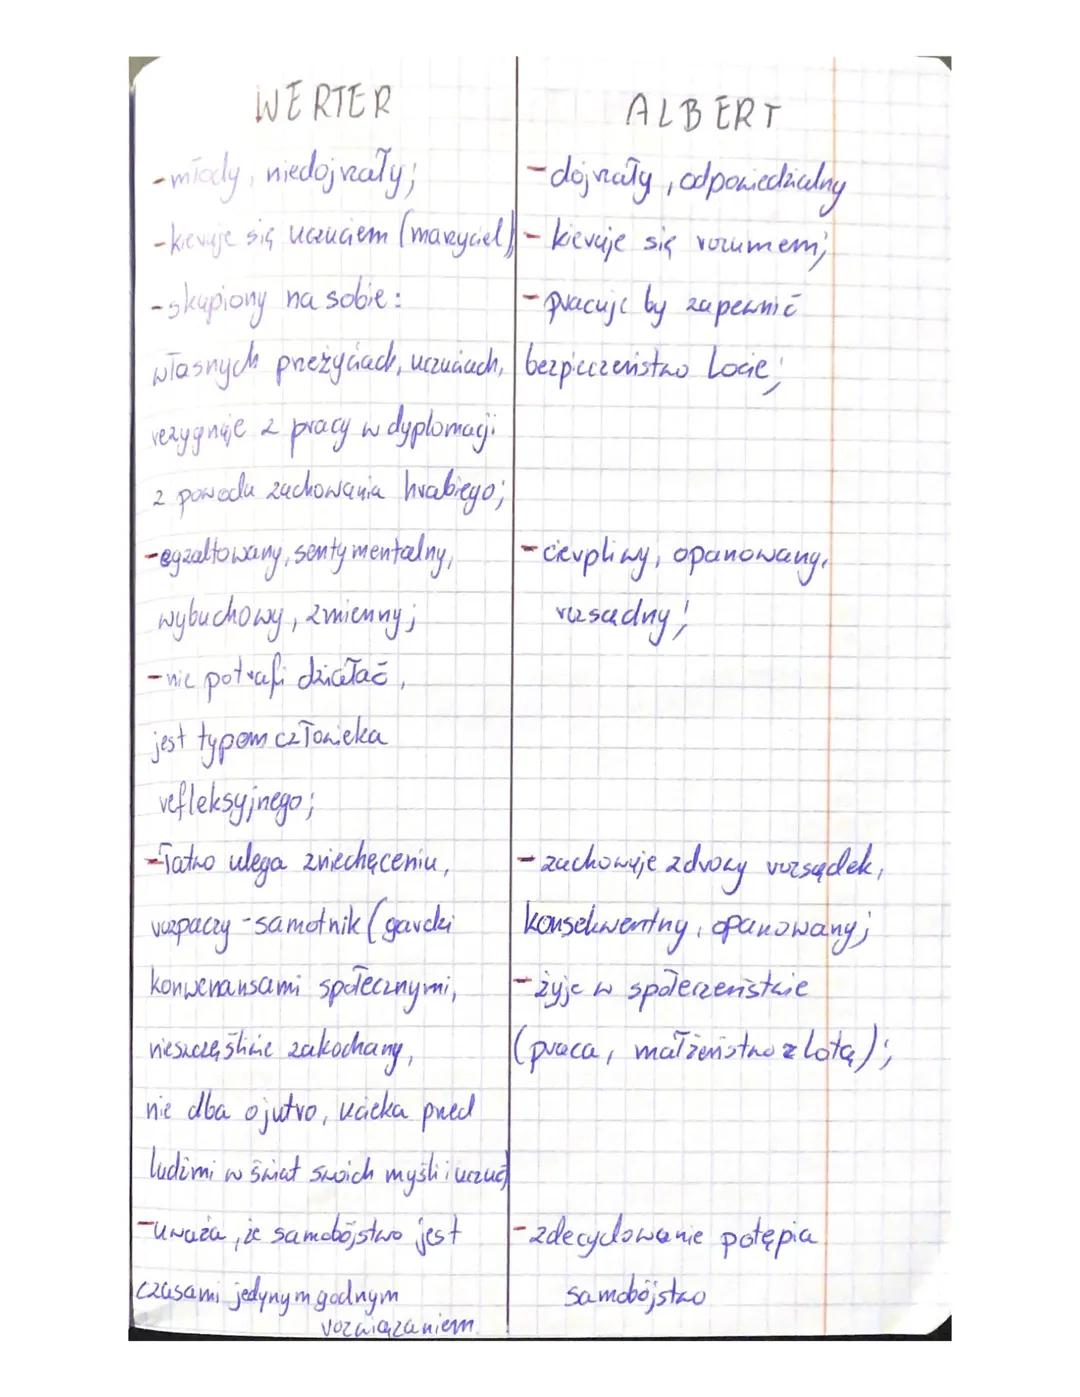 WERTER
- młody, niedojrzały;
- kieruje się uczuciem (marzyciel)
- skupiony na sobie:
własnych przeżyciach, uczuciach,
rezygnuje z pracy w dyplomacji
z powodu zachowania hrabiego;
- egzaltowany, sentymentalny,
wybuchowy, zmienny;
- nie potrafi działać,
jest typem człowieka
refleksyjnego;
- łatwo ulega zniechęceniu,
rozpaczy - samotnik (gardzi
konwenansami społecznymi,
nieszczęśliwie zakochany,
nie dba o jutro, ucieka przed
ludźmi w świat swoich myśli i uczuć)
- uważa, że samobójstwo jest
czasami jedynym godnym
rozwiązaniem.
ALBERT
- dojrzały, odpowiedzialny
- kieruje się rozumem;
- pracuje by zapewnić
bezpieczeństwo Locie;
- cierpliwy, opanowany,
rozsądny;
- zachowuje zdrowy rozsądek,
konsekwentny, opanowany;
- żyje w społeczeństwie
(praca, małżeństwo z Lotą);
- zdecydowanie potępia
samobójstwo